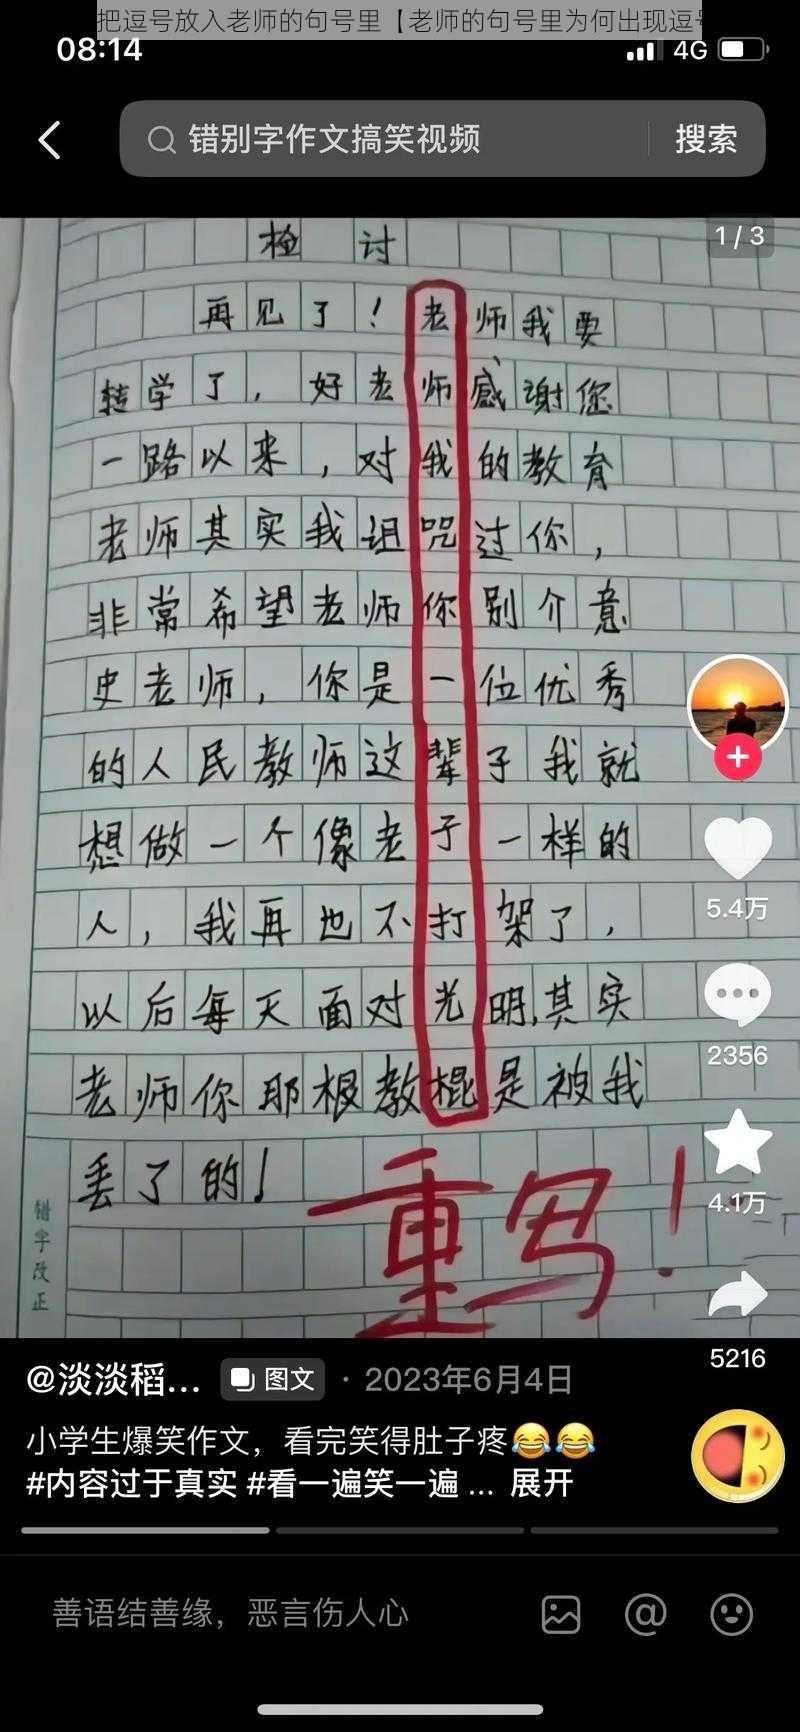 把逗号放入老师的句号里【老师的句号里为何出现逗号
08:14
4G
错别字作文搞笑视频
搜索
1/3
检讨
再见了！老师我要
转学了，好老师感谢您
一路以来，对我的教育
老师其实我诅咒过你，
非常希望老师你别介意
史老师，你是一位优秀
的人民教师这辈子我就
想做一个像老子一样的
人，我再也不打架了，
以后每天面对光明，其实
老师你那根教棍是被我
丢了的！
重写！
错字改正
5.4万
2356
4.1万
5216
@淡淡稻... 图文 · 2023年6月4日
小学生爆笑作文，看完笑得肚子疼😂😂
#内容过于真实 #看一遍笑一遍 ... 展开
善语结善缘，恶言伤人心